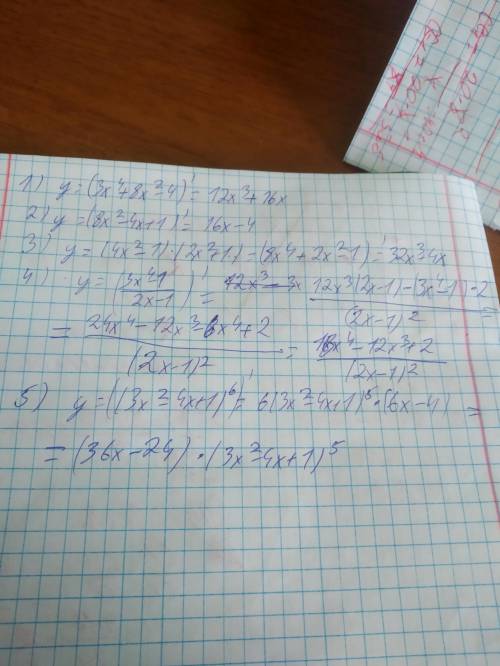 1) y=(3x⁴+8x²-4)'=12x³+16x
2) y=(8x²-4x+1)'=16x-4
3) y=(4x²-1)·(2x²+1)=(8x⁴+2x²-1)'=32x³4x
4) y=(3x⁴-1/2x-1)'= 12x³(2x-1)-(3x⁴-1)·2/(2x-1)² =
= 24x⁴-12x³-6x⁴+2/(2x-1)² = 18x⁴-12x³+2/(2x-1)²
5) y=((3x²-4x+1)⁶)'=6(3x²-4x+1)⁵·(6x-4) =
=(36x-24)·(3x²-4x+1)⁵